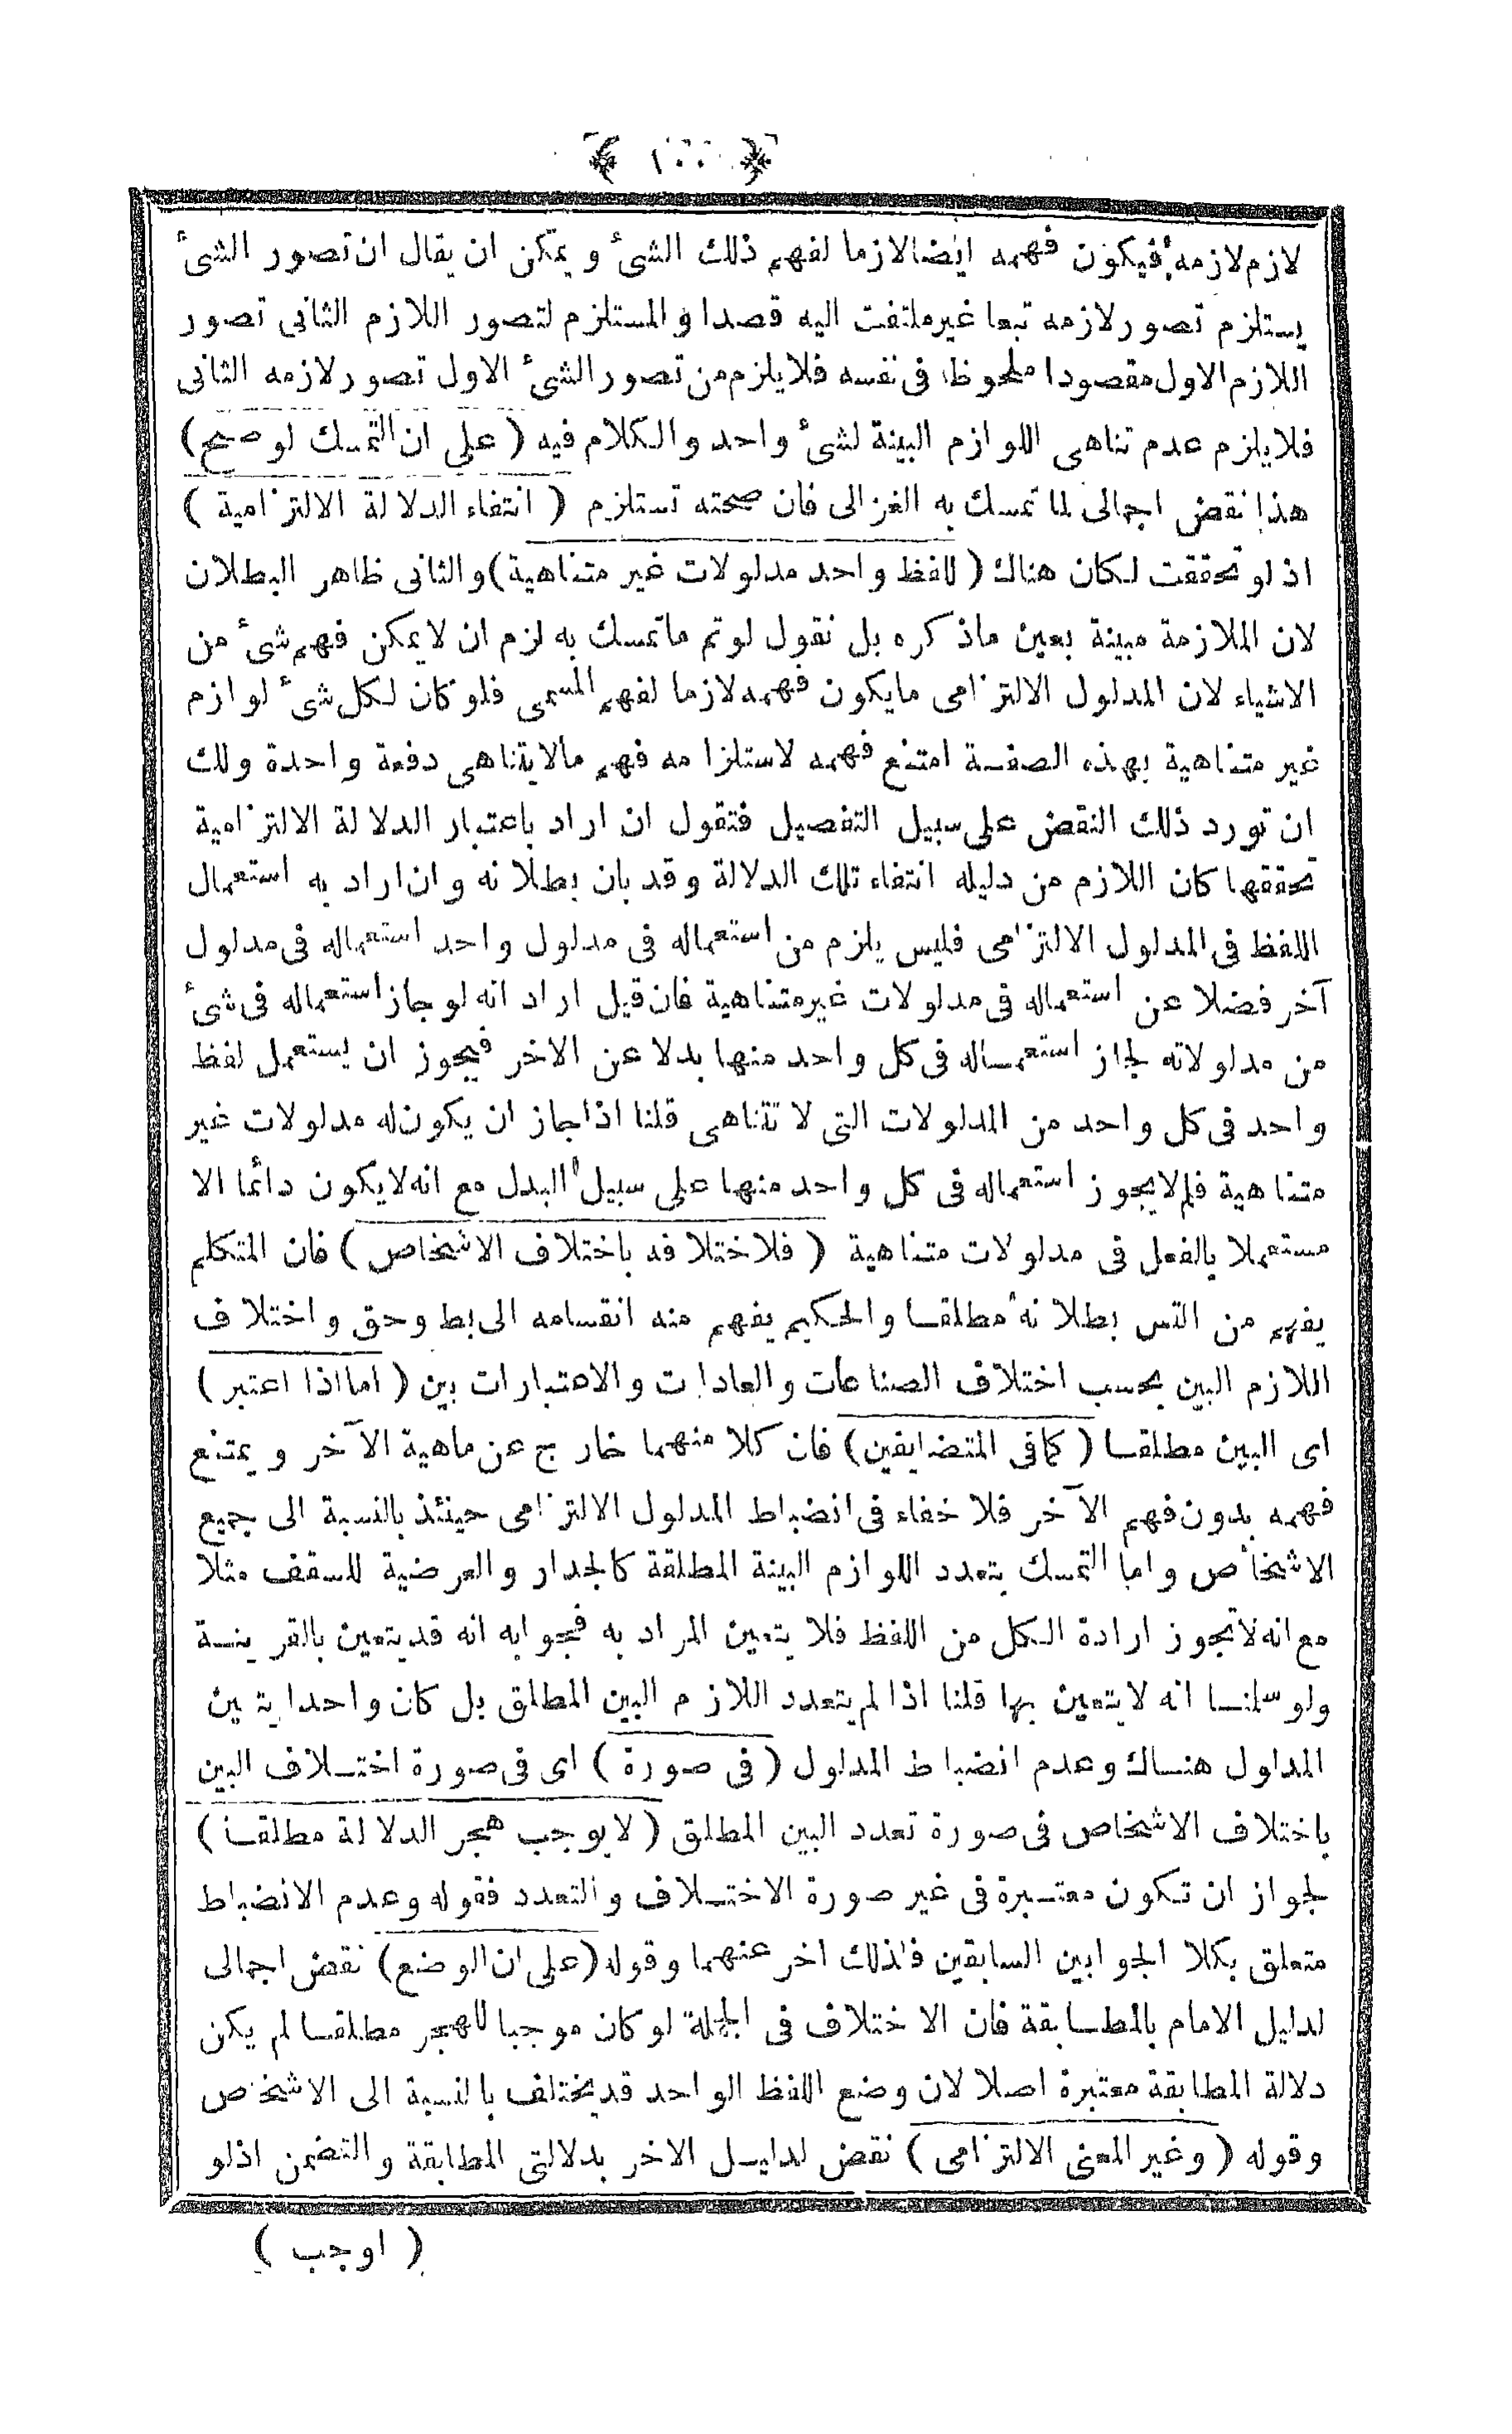 ﴿ ١٠٠ ﴾
لازم لازمه فيكون فهمه ايضا لازما لفهم ذلك الشئ و يمكن ان يقال ان تصور الشئ
يستلزم تصور لازمه تبعا غير ملتفت اليه قصدا و المستلزم لتصور اللازم الثانى تصور
اللازم الاول مقصودا ملحوظا فى نفسه فلا يلزم من تصور الشئ الاول تصور لازمه الثانى
فلا يلزم عدم تناهى اللوازم البينة لشئ واحد والكلام فيه ( على ان التمسك لو صح )
هذا نقض اجمالى لما تمسك به الغزالى فان صحته تستلزم ( انتفاء الدلالة الالتزامية )
اذ لو تحققت لكان هناك ( للفظ واحد مدلولات غير متناهية ) والثانى ظاهر البطلان
لان الملازمة مبينة بعين ماذكره بل نقول لوتم ماتمسك به لزم ان لايمكن فهم شئ من
الاشياء لان المدلول الالتزامى مايكون فهمه لازما لفهم المسمى فلو كان لكل شئ لوازم
غير متناهية بهذه الصفة امتنع فهمه لاستلزامه فهم مالايتناهى دفعة واحدة ولك
ان تورد ذلك النقض على سبيل التفصيل فتقول ان اراد باعتبار الدلالة الالتزامية
تحققها كان اللازم من دليله انتفاء تلك الدلالة وقد بان بطلانه وان اراد به استعمال
اللفظ فى المدلول الالتزامى فليس يلزم من استعماله فى مدلول واحد استعماله فى مدلول
آخر فضلا عن استعماله فى مدلولات غير متناهية فان قيل اراد انه لو جاز استعماله فى شئ
من مدلولاته لجاز استعماله فى كل واحد منها بدلا عن الاخر فيجوز ان يستعمل لفظ
واحد فى كل واحد من المدلولات التى لا تتناهى قلنا اذا جاز ان يكون له مدلولات غير
متناهية فلم لايجوز استعماله فى كل واحد منها على سبيل البدل مع انه لايكون دائما الا
مستعملا بالفعل فى مدلولات متناهية ( فلاختلافه باختلاف الاشخاص ) فان المتكلم
يفهم من التس بطلانه مطلقا والحكيم يفهم منه انقسامه الى بط وحق واختلاف
اللازم البين بحسب اختلاف الصناعات والعادات والاعتبارات بين ( امااذا اعتبر )
اى البين مطلقا ( كمافى المتضايفين ) فان كلا منهما خارج عن ماهية الآخر و يمتنع
فهمه بدون فهم الآخر فلا خفاء فى انضباط المدلول الالتزامى حينئذ بالنسبة الى جميع
الاشخاص واما التمسك بتعدد اللوازم البينة المطلقة كالجدار والعرضية للسقف مثلا
مع انه لاتجوز ارادة الكل من اللفظ فلا يتعين المراد به فجوابه انه قديتعين بالقرينة
ولو سلنا انه لايتعين بها قلنا اذا لم يتعدد اللازم البين المطلق بل كان واحدا يتعين
المدلول هناك وعدم انضباط المدلول ( فى صورة ) اى فى صورة اختلاف البين
باختلاف الاشخاص فى صورة تعدد البين المطلق ( لايوجب هجر الدلالة مطلقا )
لجواز ان تكون معتبرة فى غير صورة الاختلاف والتعدد فقوله وعدم الانضباط
متعلق بكلا الجوابين السابقين فلذلك اخر عنهما وقوله ( على ان الوضع ) نقض اجمالى
لدليل الامام بالمطابقة فان الاختلاف فى الجملة لو كان موجبا للهجر مطلقا لم يكن
دلالة المطابقة معتبرة اصلا لان وضع اللفظ الواحد قديختلف بالنسبة الى الاشخاص
وقوله ( وغير المعنى الالتزامى ) نقض لدليل الاخر بدلالتى المطابقة والتضمن اذلو
( اوجب )